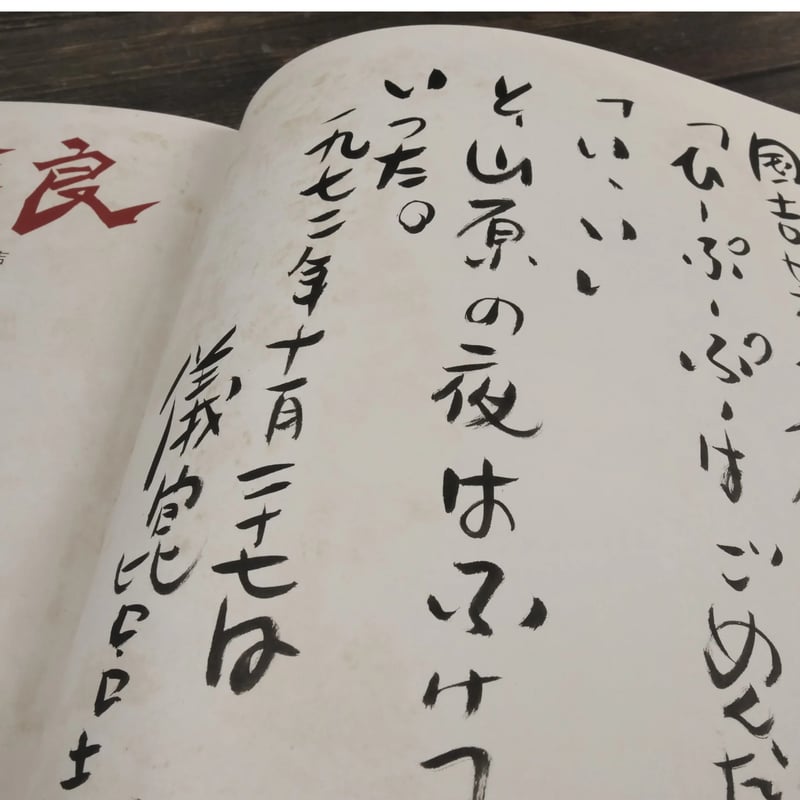 國吉
「ひーぷーぷーは ごめんだ
「い、い」
と、山原の夜はふけて
いった。
一九七二年十月二十七日
儀間比呂志
良